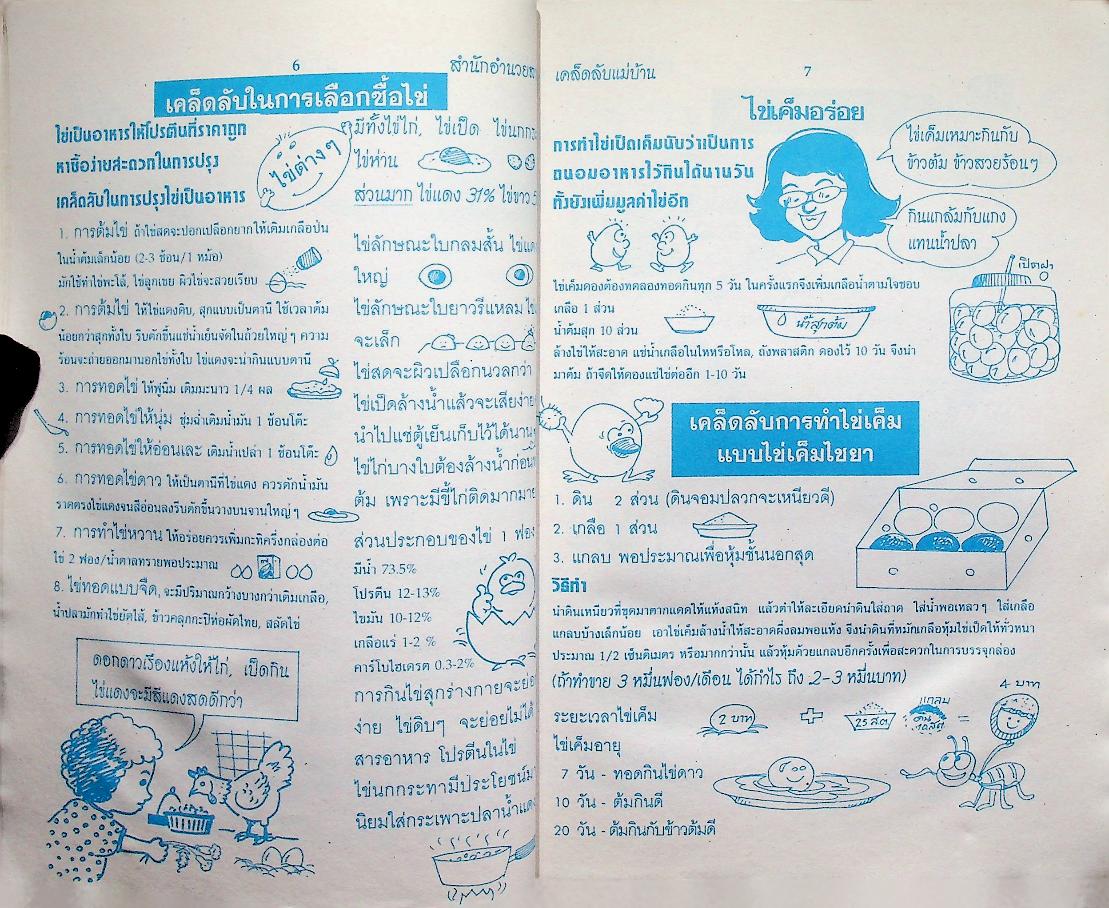 6
สำนักอำนวย
เคล็ดลับในการเลือกซื้อไข่
ไข่เป็นอาหารให้โปรตีนที่ราคาถูก
หาซื้อง่ายสะดวกในการปรุง
เคล็ดลับในการปรุงไข่เป็นอาหาร
ไข่ต่างๆ
1. การต้มไข่ ถ้าไข่สดจะปอกเปลือกยากให้เติมเกลือป่น
ในน้ำต้มเล็กน้อย (2-3 ช้อน/1 หม้อ)
มักใช้ทำไข่พะโล้, ไข่ลูกเขย ผิวไข่จะสวยเรียบ
2. การต้มไข่ ให้ไข่แดงดิบ, สุกแบบเป็นตานี ใช้เวลาต้ม
น้อยกว่าสุกทั้งใบ รีบตักขึ้นแช่น้ำเย็นจัดในถ้วยใหญ่ๆ ความ
ร้อนจะถ่ายออกมานอกไข่ทั้งใบ ไข่แดงจะน่ากินแบบตานี
3. การทอดไข่ ให้ฟูนิ่ม เติมมะนาว 1/4 ผล
4. การทอดไข่ให้นุ่ม ชุ่มฉ่ำเติมน้ำมัน 1 ช้อนโต๊ะ
5. การทอดไข่ให้อ่อนเละ เติมน้ำเปล่า 1 ช้อนโต๊ะ
6. การทอดไข่ดาว ให้เป็นตานีที่ไข่แดง ควรตักน้ำมัน
ราดตรงไข่แดงจนสีอ่อนลงรีบตักขึ้นวางบนจานใหญ่ๆ
7. การทำไข่หวาน ให้อร่อยควรเพิ่มกะทิครึ่งกล่องต่อ
ไข่ 2 ฟอง/น้ำตาลทรายพอประมาณ
8. ไข่ทอดแบบจืด, จะมีปริมาณกว้างบางกว่าเติมเกลือ,
น้ำปลามักทำไข่ยัดไส้, ข้าวคลุกกะปิห่อผัดไทย, สลัดไข่
ดอกดาวเรืองแห้งให้ไก่, เป็ดกิน
ไข่แดงจะมีสีแดงสดดีกว่า
มีทั้งไข่ไก่, ไข่เป็ด ไข่นกกระ
ไข่ห่าน
ส่วนมาก ไข่แดง 31% ไข่ขาว 5
ไข่ลักษณะใบกลมสั้น ไข่แด
ใหญ่
ไข่ลักษณะใบยาวรีแหลม ไข
จะเล็ก
ไข่สดจะผิวเปลือกนวลกว่า
ไข่เป็ดล้างน้ำแล้วจะเสียง่าย
นำไปแช่ตู้เย็นเก็บไว้ได้นาน
ไข่ไก่บางใบต้องล้างน้ำก่อน
ต้ม เพราะมีขี้ไก่ติดมากมาย
ส่วนประกอบของไข่ 1 ฟอง
มีน้ำ 73.5%
โปรตีน 12-13%
ไขมัน 10-12%
เกลือแร่ 1-2 %
คาร์โบไฮเดรต 0.3-2%
การกินไข่สุกร่างกายจะย่อย
ง่าย ไข่ดิบๆ จะย่อยไม่ได้
สารอาหาร โปรตีนในไข่
ไข่นกกระทามีประโยชน์มา
นิยมใส่กระเพาะปลาน้ำแดง
เคล็ดลับแม่บ้าน
7
ไข่เค็มอร่อย
การทำไข่เป็ดเค็มนับว่าเป็นการ
ถนอมอาหารไว้กินได้นานวัน
ทั้งยังเพิ่มมูลค่าไข่อีก
ไข่เค็มเหมาะกินกับ
ข้าวต้ม ข้าวสวยร้อนๆ
กินแกล้มกับแกง
แทนน้ำปลา
เปิดฝา
ไข่เค็มดองต้องทดลองทอดกินทุก 5 วัน ในครั้งแรกจึงเพิ่มเกลือน้ำตามใจชอบ
เกลือ 1 ส่วน
น้ำต้มสุก 10 ส่วน
น้ำสุกต้ม
ล้างไข่ให้สะอาด แช่น้ำเกลือในไหหรือโหล, ถังพลาสติก ดองไว้ 10 วัน จึงนำ
มาต้ม ถ้าจืดให้ดองแช่ไข่ต่ออีก 1-10 วัน
เคล็ดลับการทำไข่เค็ม
แบบไข่เค็มไชยา
1. ดิน 2 ส่วน (ดินจอมปลวกจะเหนียวดี)
2. เกลือ 1 ส่วน
3. แกลบ พอประมาณเพื่อหุ้มชั้นนอกสุด
วิธีทำ
นำดินเหนียวที่ขุดมาตากแดดให้แห้งสนิท แล้วตำให้ละเอียดนำดินใส่ถาด ใส่น้ำพอเหลวๆ ใส่เกลือ
แกลบบ้างเล็กน้อย เอาไข่เค็มล้างน้ำให้สะอาดผึ่งลมพอแห้ง จึงนำดินที่หมักเกลือหุ้มไข่เป็ดให้ทั่วหนา
ประมาณ 1/2 เซ็นติเมตร หรือมากกว่านั้น แล้วหุ้มด้วยแกลบอีกครั้งเพื่อสะดวกในการบรรจุกล่อง
(ถ้าทำขาย 3 หมื่นฟอง/เดือน ได้กำไร ถึง 2-3 หมื่นบาท)
ระยะเวลาไข่เค็ม
2 บาท
+
25 ส.ต.
แกลบ
ดิน
=
4 บาท
ไข่เค็มอายุ
7 วัน - ทอดกินไข่ดาว
10 วัน - ต้มกินดี
20 วัน - ต้มกินกับข้าวต้มดี